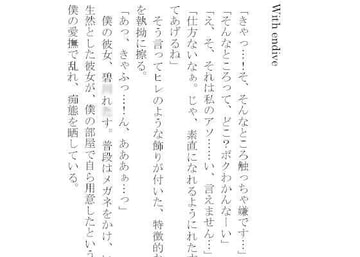 With endive
「きゃっ…!そ、そんなところ触っちゃ嫌です…」
「そんなところって、どこ?ボクわかんなーい」
「え、そ、それは私のアソ……い、言えません…」
「仕方ないなぁ。じゃ、素直になれるように
てあげるね」
そう言ってヒレのような飾りが付いた、特徴的
を執拗に擦る。
「あっ、きゃふっ…!ん、あああぁ…っ」
僕の彼女、碧 す。普段はメガネをかけ、い
生然とした彼女が、僕の部屋で自ら用意したという
僕の愛撫で乱れ、痴態を晒している。